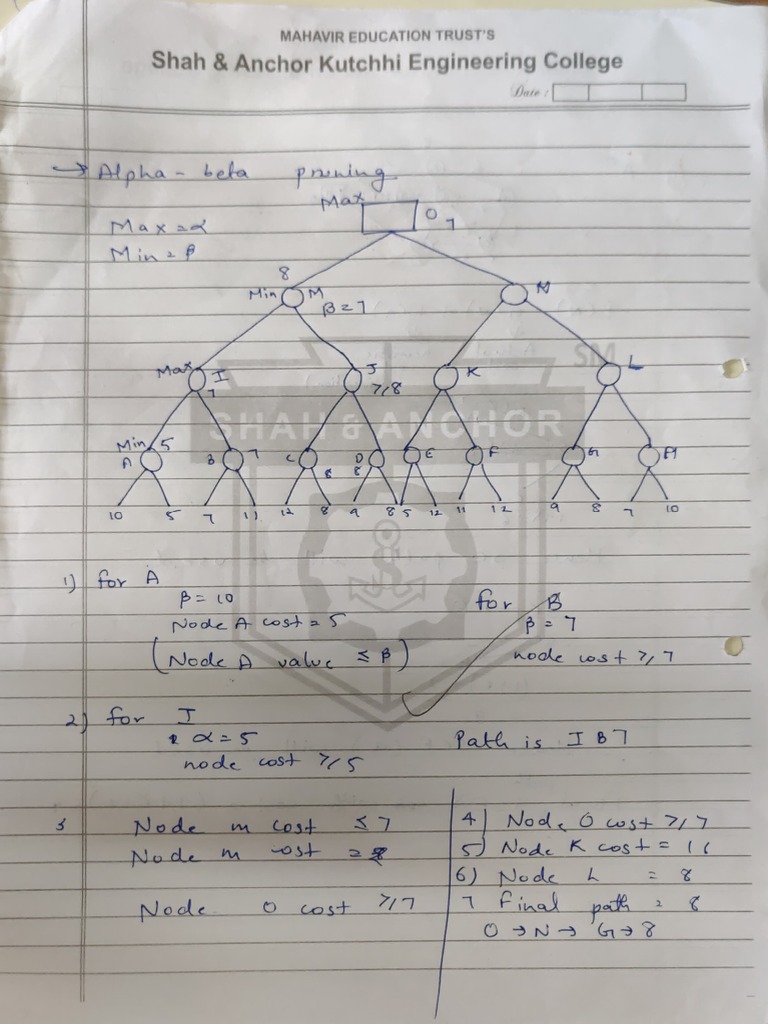 MAHAVIR EDUCATION TRUST'S
Shah & Anchor Kutchhi Engineering College
Date :
→ Alpha - beta pruning
Max = α
Min = β
Max O 7
8
Min M N
β = 7
Max I J K L
7 ≥, 8
SM
SHAH & ANCHOR
Min 5
A B 7 C 8 D 8 E F G H
10 5 7 11 12 8 9 8 5 12 11 12 9 8 7 10
1) for A
β = 10
Node A cost = 5
(Node A value ≤ β)
for B
β = 7
node cost ≥, 7
2) for I
α = 5
node cost ≥, 5
Path is I B 7
3 Node m cost ≤ 7
Node m cost = 8
Node O cost ≥, 7
4) Node O cost ≥, 7
5) Node K cost = 11
6) Node L = 8
7 Final path = 8
O → N → G → 8